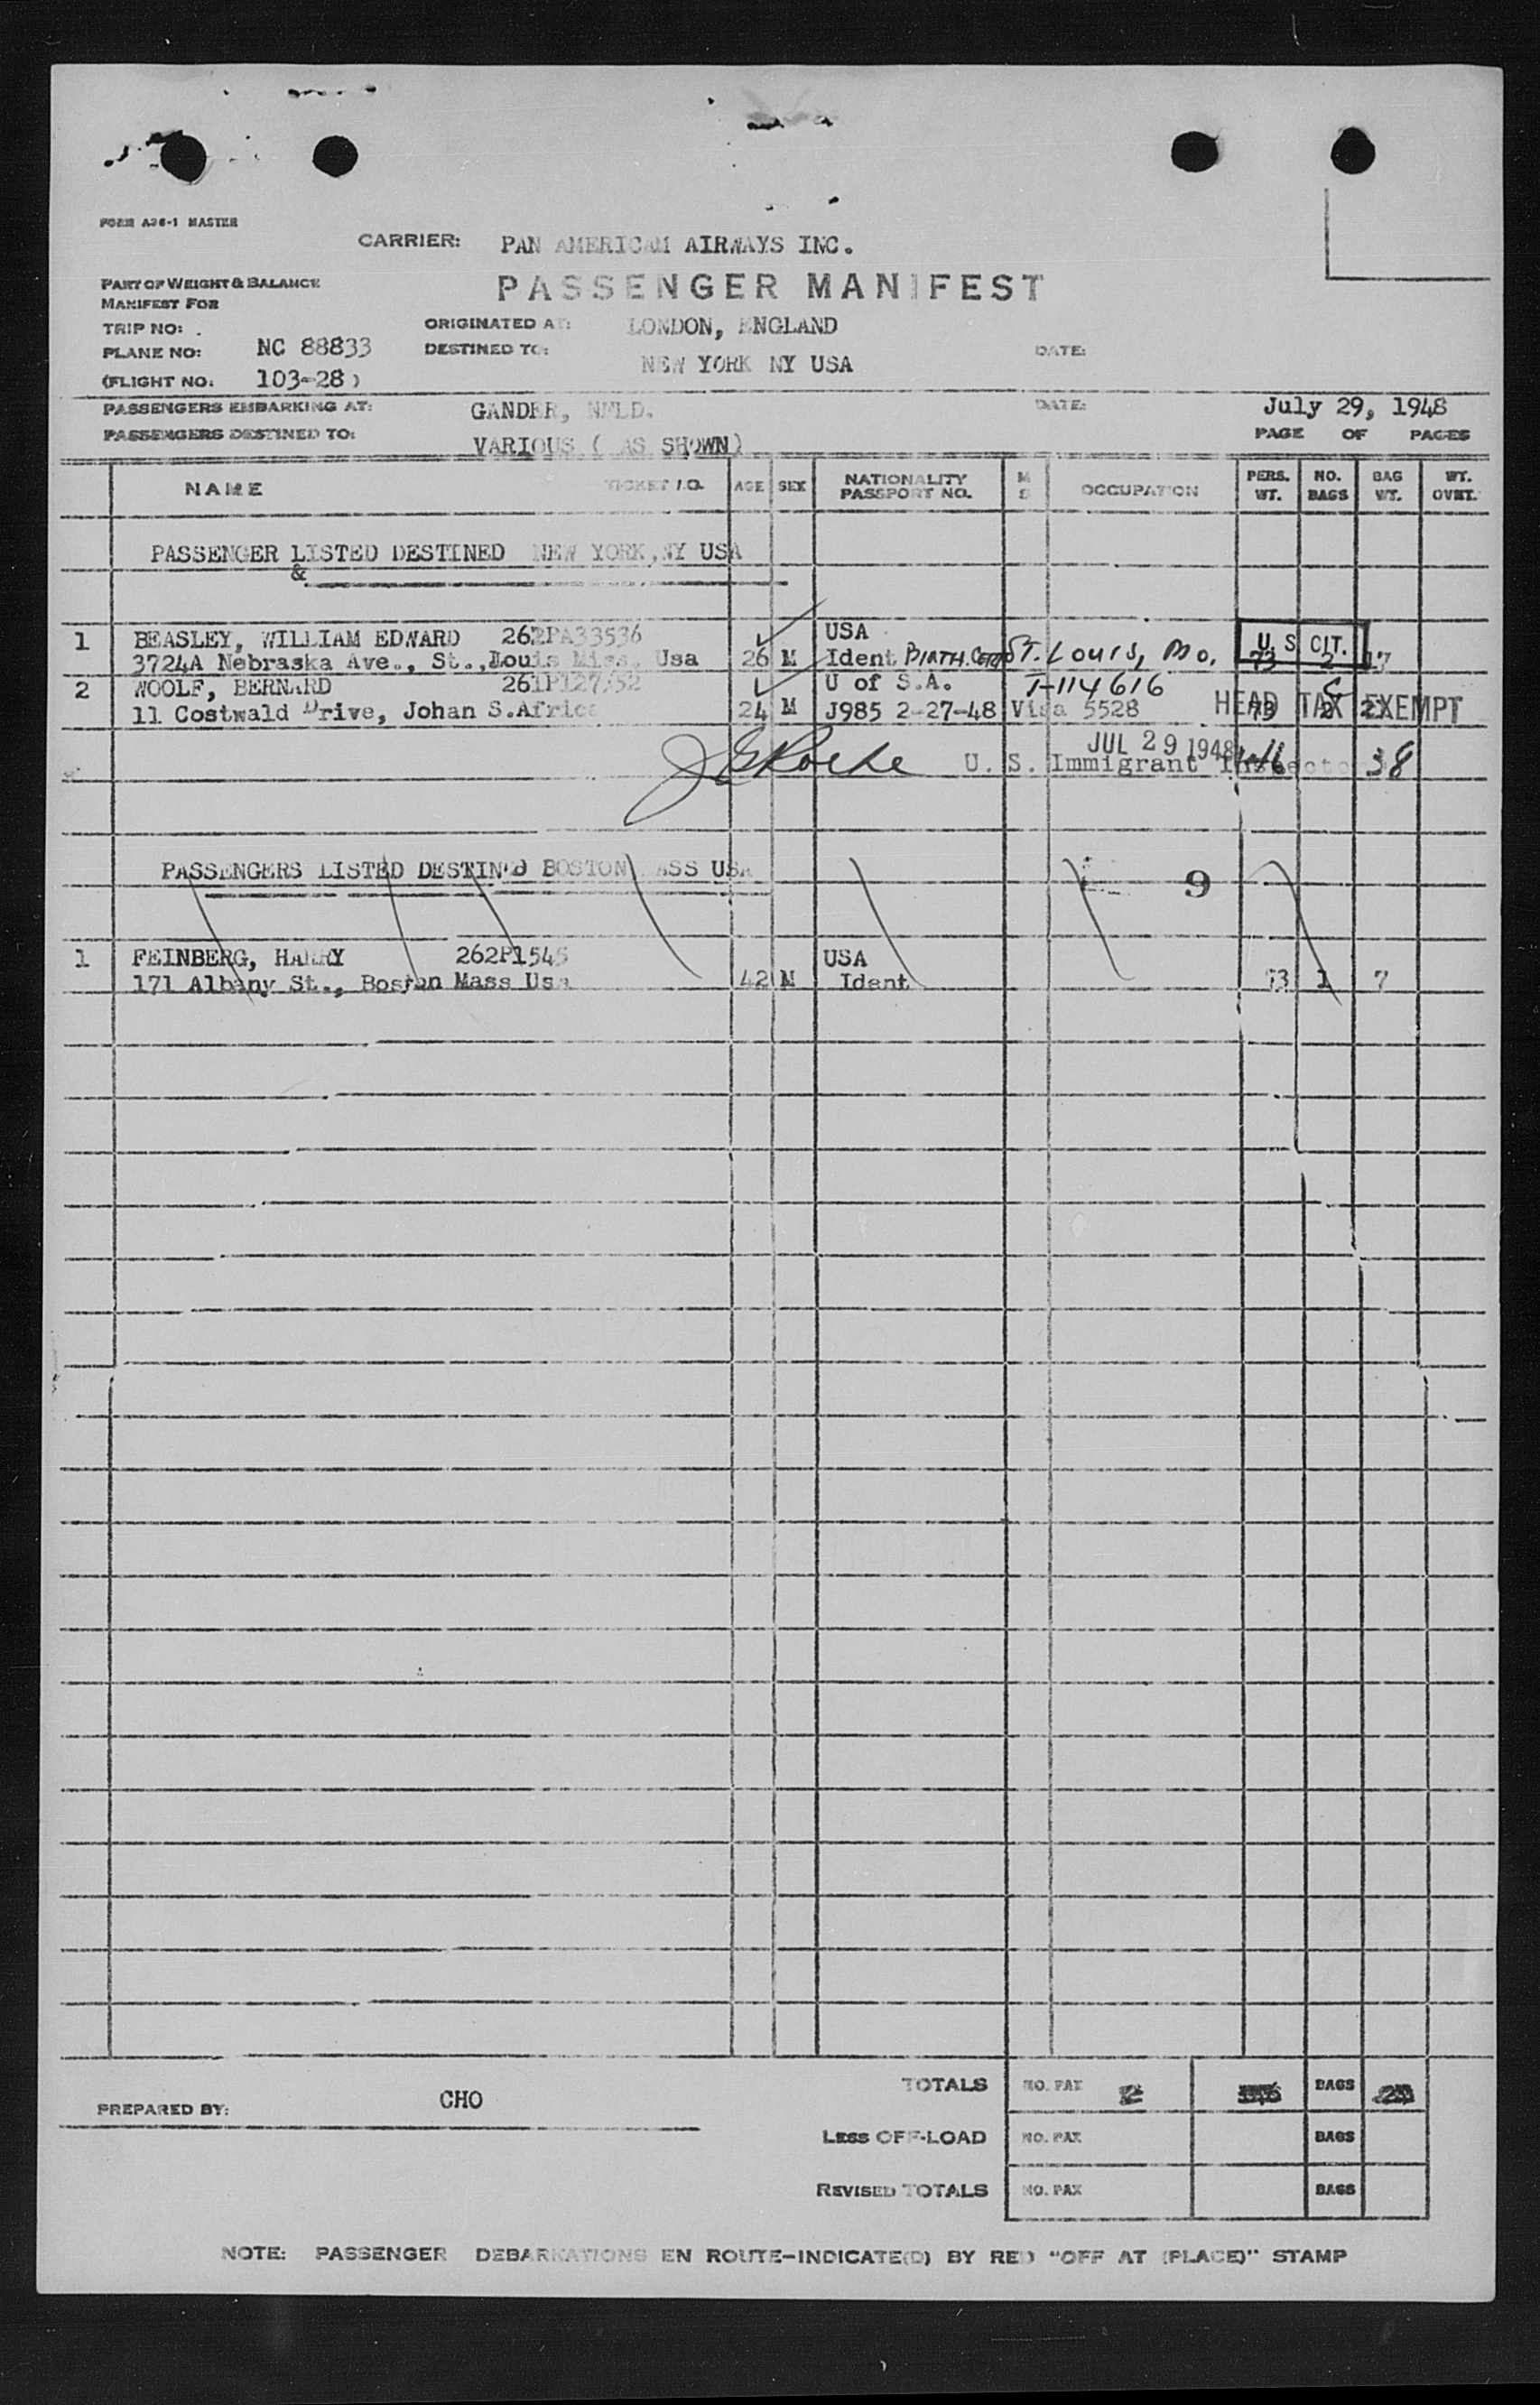 FORM A26-1 MASTER
CARRIER: PAN AMERICAN AIRWAYS INC.
PART OF WEIGHT & BALANCE
MANIFEST FOR
PASSENGER MANIFEST
TRIP NO: ORIGINATED AT: LONDON, ENGLAND
PLANE NO: NC 88833 DESTINED TO: NEW YORK NY USA DATE:
(FLIGHT NO. 103-28)
PASSENGERS EMBARKING AT: GANDER, NFLD. DATE: July 29, 1948
PASSENGERS DESTINED TO: VARIOUS ( AS SHOWN) PAGE OF PAGES
NAME TICKET I.O. AGE SEX NATIONALITY PASSPORT NO. M S OCCUPATION PERS. WT. NO. BAGS BAG WT. WT. OVRT.
PASSENGER LISTED DESTINED NEW YORK,NY USA
&
1 BEASLEY, WILLIAM EDWARD 262PA33536 USA U S CIT.
3724A Nebraska Ave., St.,Louis Miss. Usa 26 M Ident BIRTH. Cert ST. Louis, Mo. 73 2 17
2 WOOLF, BERNARD U of S.A. T-114616
11 Costwald Drive, Johan S.Africa 24 M J985 2-27-48 Visa 5528 73 2 HEAD TAX EXEMPT
JUL 29 1948
U. S. Immigrant Inspector 146 38
PASSENGERS LISTED DESTINed BOSTON MASS USA 9
1 FEINBERG, HARRY 262P1545 USA
171 Albany St., Boston Mass Usa 42 M Ident 73 1 7
TOTALS NO. PAX 2 BAGS
PREPARED BY: CHO
LESS OFF-LOAD NO. PAX BAGS
REVISED TOTALS NO. PAX BAGS
NOTE: PASSENGER DEBARKATIONS EN ROUTE-INDICATE(D) BY RED "OFF AT (PLACE)" STAMP